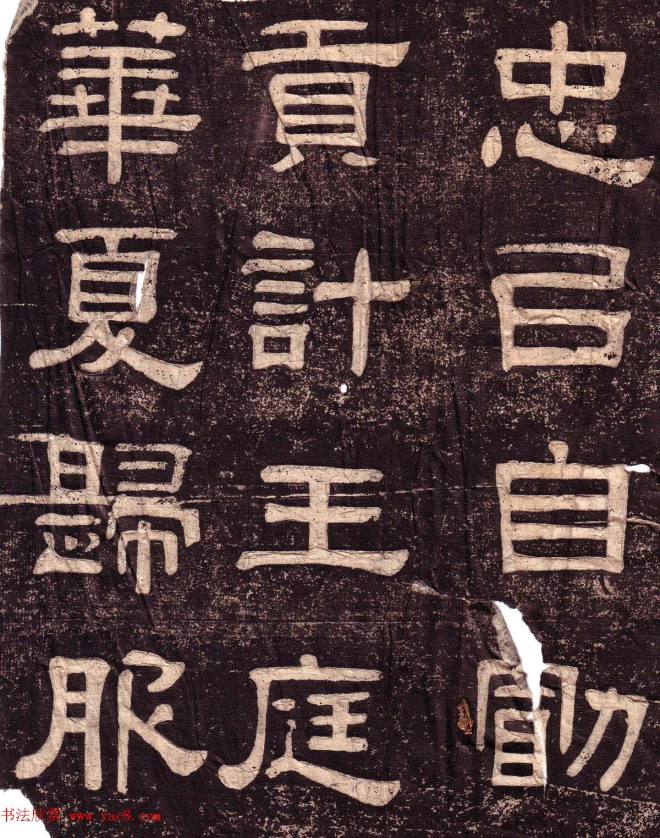 忠㠯自勖
貢計王庭
華夏歸服
书法欣赏 www.yac8.com